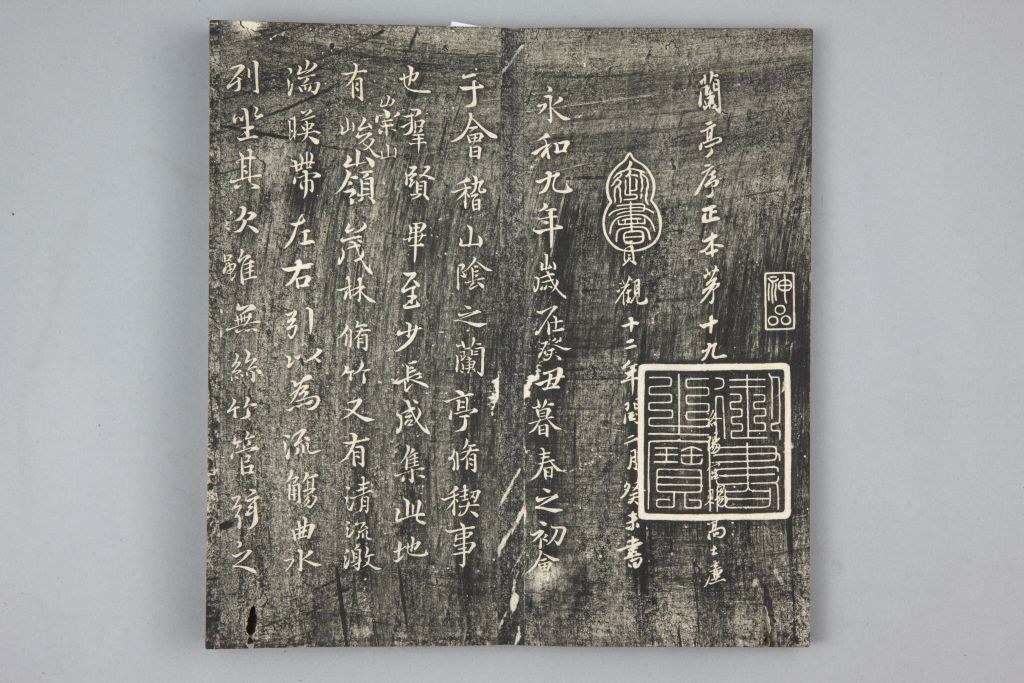 神品
蘭亭序正本第十九
賜高士廬
御書
貞觀十二年閏二月癸未書
永和九年歲在癸丑暮春之初會
于會稽山陰之蘭亭脩稧事
也羣賢畢至少長咸集此地
有崇山峻嶺茂林脩竹又有清流激
湍暎帶左右引以為流觴曲水
列坐其次雖無絲竹管弦之